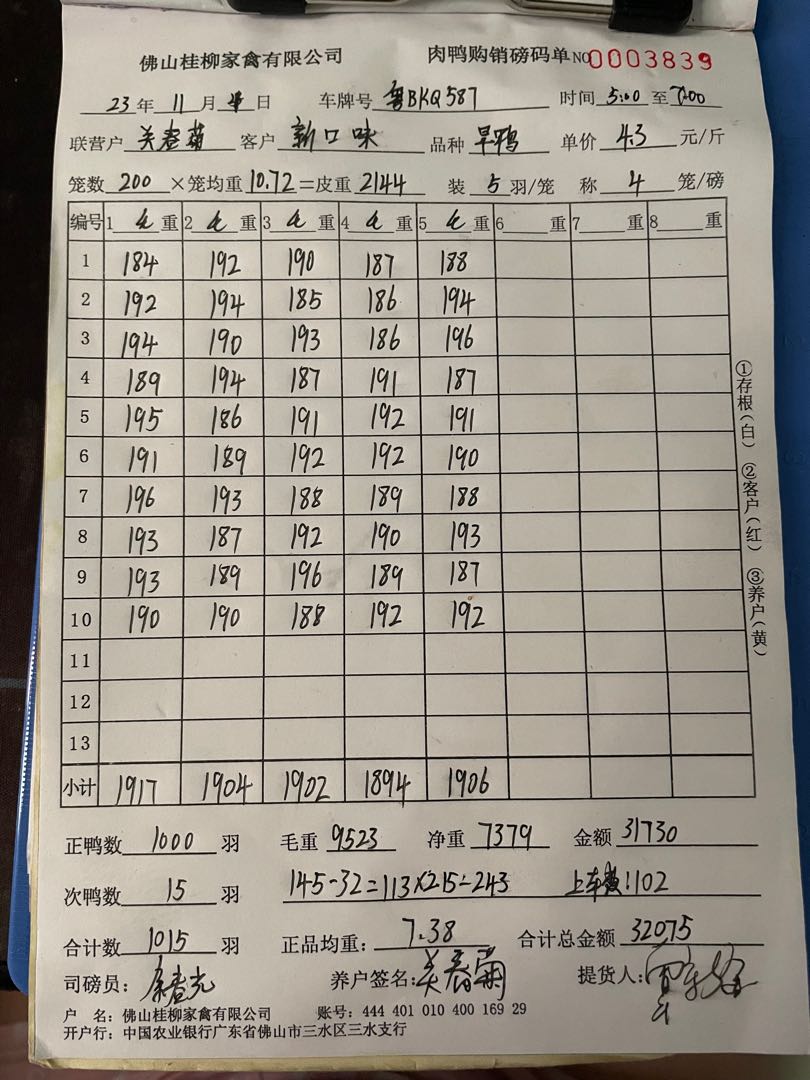 佛山桂柳家禽有限公司 肉鸭购销磅码单 NO 0003839
23年 11月 日 车牌号 粤BKQ587 时间 5:00 至 7:00
联营户 关春菊 客户 新口味 品种 旱鸭 单价 4.3 元/斤
笼数 200 ×笼均重 10.72 =皮重 2144 装 5 羽/笼 称 4 笼/磅
编号 1 毛 重 2 毛 重 3 毛 重 4 毛 重 5 毛 重 6 重 7 重 8 重
1 184 192 190 187 188
2 192 194 185 186 194
3 194 190 193 186 196
4 189 194 187 191 187
5 195 186 191 192 191
6 191 189 192 192 190
7 196 193 188 189 188
8 193 187 192 190 193
9 193 189 196 189 187
10 190 190 188 192 192
11
12
13
小计 1917 1904 1902 1894 1906
正鸭数 1000 羽 毛重 9523 净重 7379 金额 31730
次鸭数 15 羽 145-32=113×2.15=243 上车费:102
合计数 1015 羽 正品均重: 7.38 合计总金额 32075
司磅员: 养户签名: 关春菊 提货人:
户 名: 佛山桂柳家禽有限公司 账号: 444 401 010 400 169 29
开户行: 中国农业银行广东省佛山市三水区三水支行
①存根(白) ②客户(红) ③养户(黄)